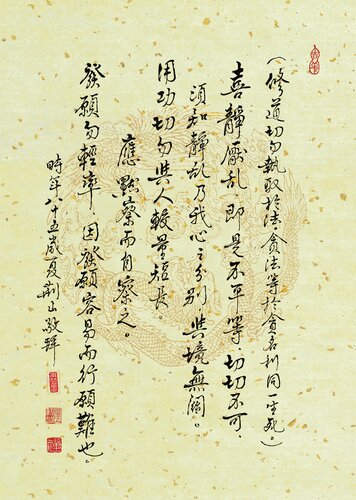 (修道切勿執取於法，貪法等於貪名利同一生死。)
喜靜厭乱，即是不平等，切切不可，
須知靜乱乃我心之分别，與境無關。
用功切勿與人較量短長。
應默察而自察之。
發願勿輕率，因發願容易而行願難也。
時年八十五歲夏荆山敬繹